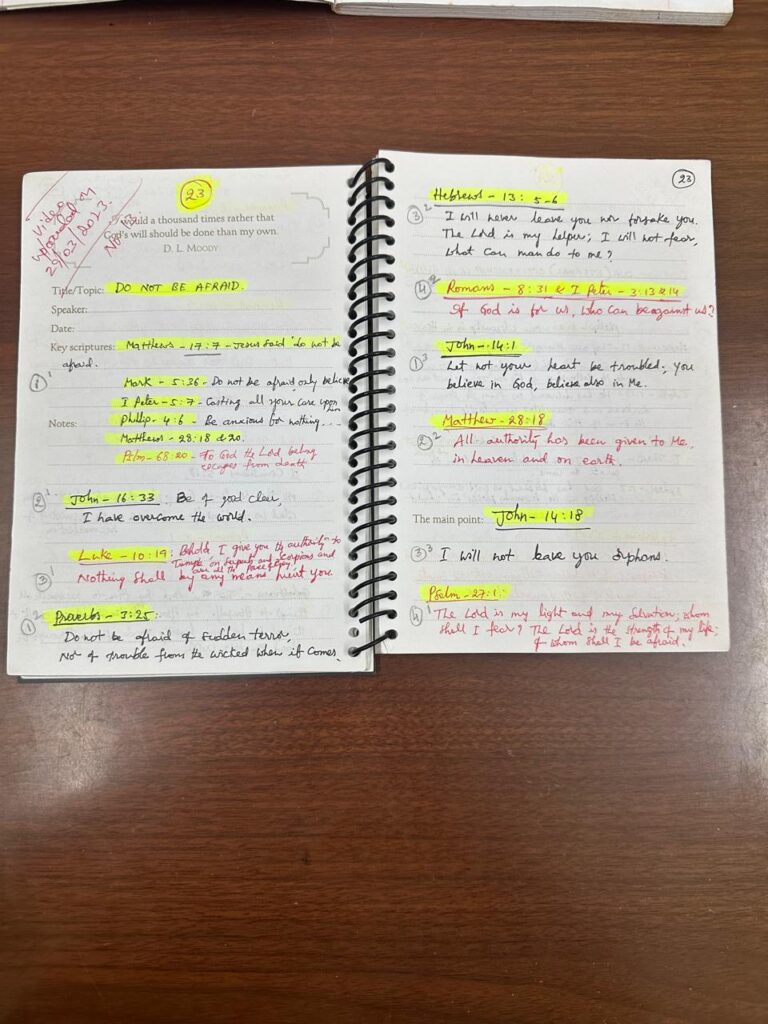 Video
uploaded on
29/03/2023.
No
23
I would a thousand times rather that
God's will should be done than my own.
D. L. MOODY
Title/Topic: DO NOT BE AFRAID.
Speaker:
Date:
Key scriptures: Matthews - 17:7 - Jesus said 'do not be
afraid.
1 1 Mark - 5:36 - Do not be afraid, only believe
I Peter - 5:7 - Casting all your care upon
Him
Phillip - 4:6 - Be anxious for nothing...
Notes: Matthews - 28:18 & 20.
Pslm - 68:20 - To God the Lord belong
escapes from death
2 1 John - 16:33 : Be of good cheer,
I have overcome the world.
Luke - 10:19 : Behold, I give you the authority to
Trample on serpents and scorpions and
over all the power of enemy
3 1 Nothing shall by any means hurt you.
1 2 Proverbs - 3:25 :
Do not be afraid of sudden terror,
Nor of trouble from the wicked when it comes.
23
Hebrews - 13: 5-6
3 2 I will never leave you nor forsake you.
The Lord is my helper; I will not fear,
What can man do to me?
4 2 Romans - 8:31 & I Peter - 3:13 & 14
If God is for us, who can be against us?
John - 14:1
1 3 Let not your heart be troubled; you
believe in God, believe also in Me.
Matthew - 28:18
2 2 All authority has been given to Me,
in heaven and on earth.
The main point: John - 14:18
3 3 I will not leave you orphans.
Psalm - 27:1 :
4 1 The Lord is my light and my salvation; whom
shall I fear? The Lord is the strength of my life;
of whom shall I be afraid.